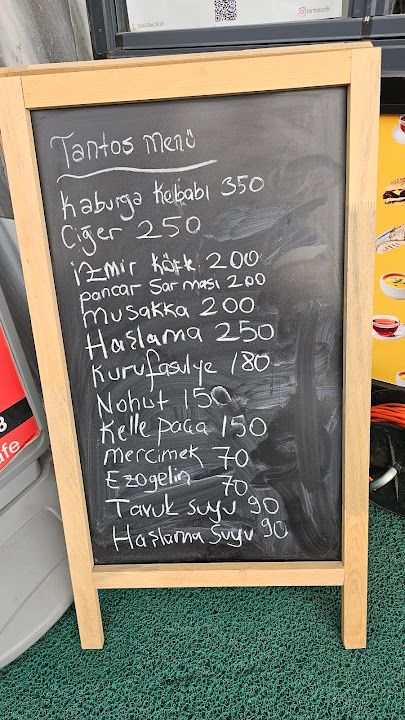 tantoscafe
Tantos Menü
Kaburga Kebabı 350
Ciğer 250
izmir köfte 200
pancar Sarması 200
Musakka 200
Haşlama 250
Kurufasulye 180
Nohut 150
Kelle paça 150
Mercimek 70
Ezogelin 70
Tavuk suyu 90
Haşlama Suyu 90
afe